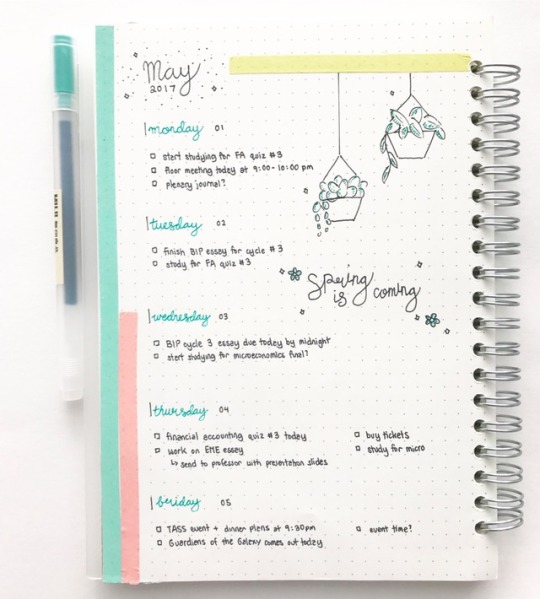 May
2017
monday 01
start studying for FA quiz #3
floor meeting today at 9:00-10:00 pm
plenary journal?
tuesday 02
finish BIP essay for cycle #3
study for FA quiz #3
Spring
is coming
wednesday 03
BIP cycle 3 essay due today by midnight
start studying for microeconomics final?
thursday 04
financial accounting quiz #3 today
work on EME essay
↳ send to professor with presentation slides
buy tickets
study for micro
friday 05
TASS event + dinner plans at 9:30pm
Guardians of the Galaxy comes out today
event time?